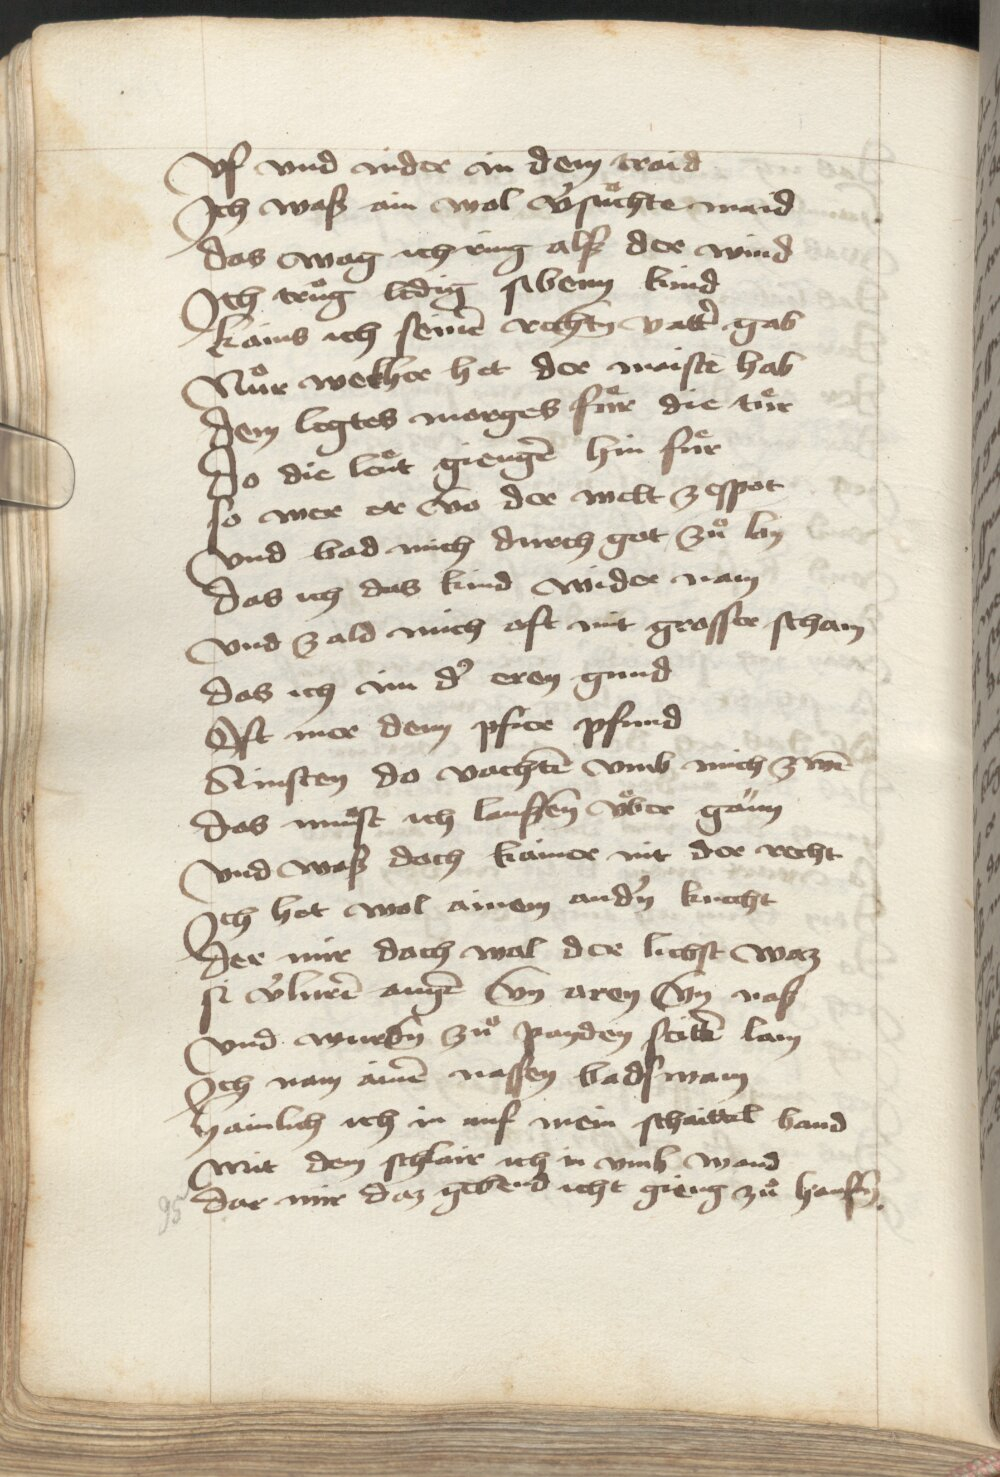 Vf vnd nider in dem traid
Ich waß ain wol v̓suͦchte maid
das wag ich ring alß der wind
Ich truͦg ledig siben kind
kains ich seinē rechtn̄ vatt̓ gab
Nuͦr welher het der maiste hab
dem legtes morges fuͤr die tuͤr
Do die leuͤt giengē hin fuͤr
so wer er vō der welt zespot
vnd bad mich durch got zuͦ
das ich das kind wider nam
vnd zald mich oft mit grosser scham
das ich im d̓ eren gund
Oft mer dem pfier pfund
Sinsten do vachtē vmb mich zwē
das muͦst ich lauffen vͤber gäun
vnd waß doch kainer nit der recht
Ich het wol ainem and̓n knecht
der mir doch wol der liebst waz
si v̓lurē augē vn̄ oren vn̄ naß
vnd wurdn̄ zuͦ payden seittē lam
Ich nam ainē nassen badswam
hainlich ich in auf mein schaittel band
Mit dem schlair ich in vmb wand
dar mir daz gebend icht gieng zuͦ hauffn̄.
95